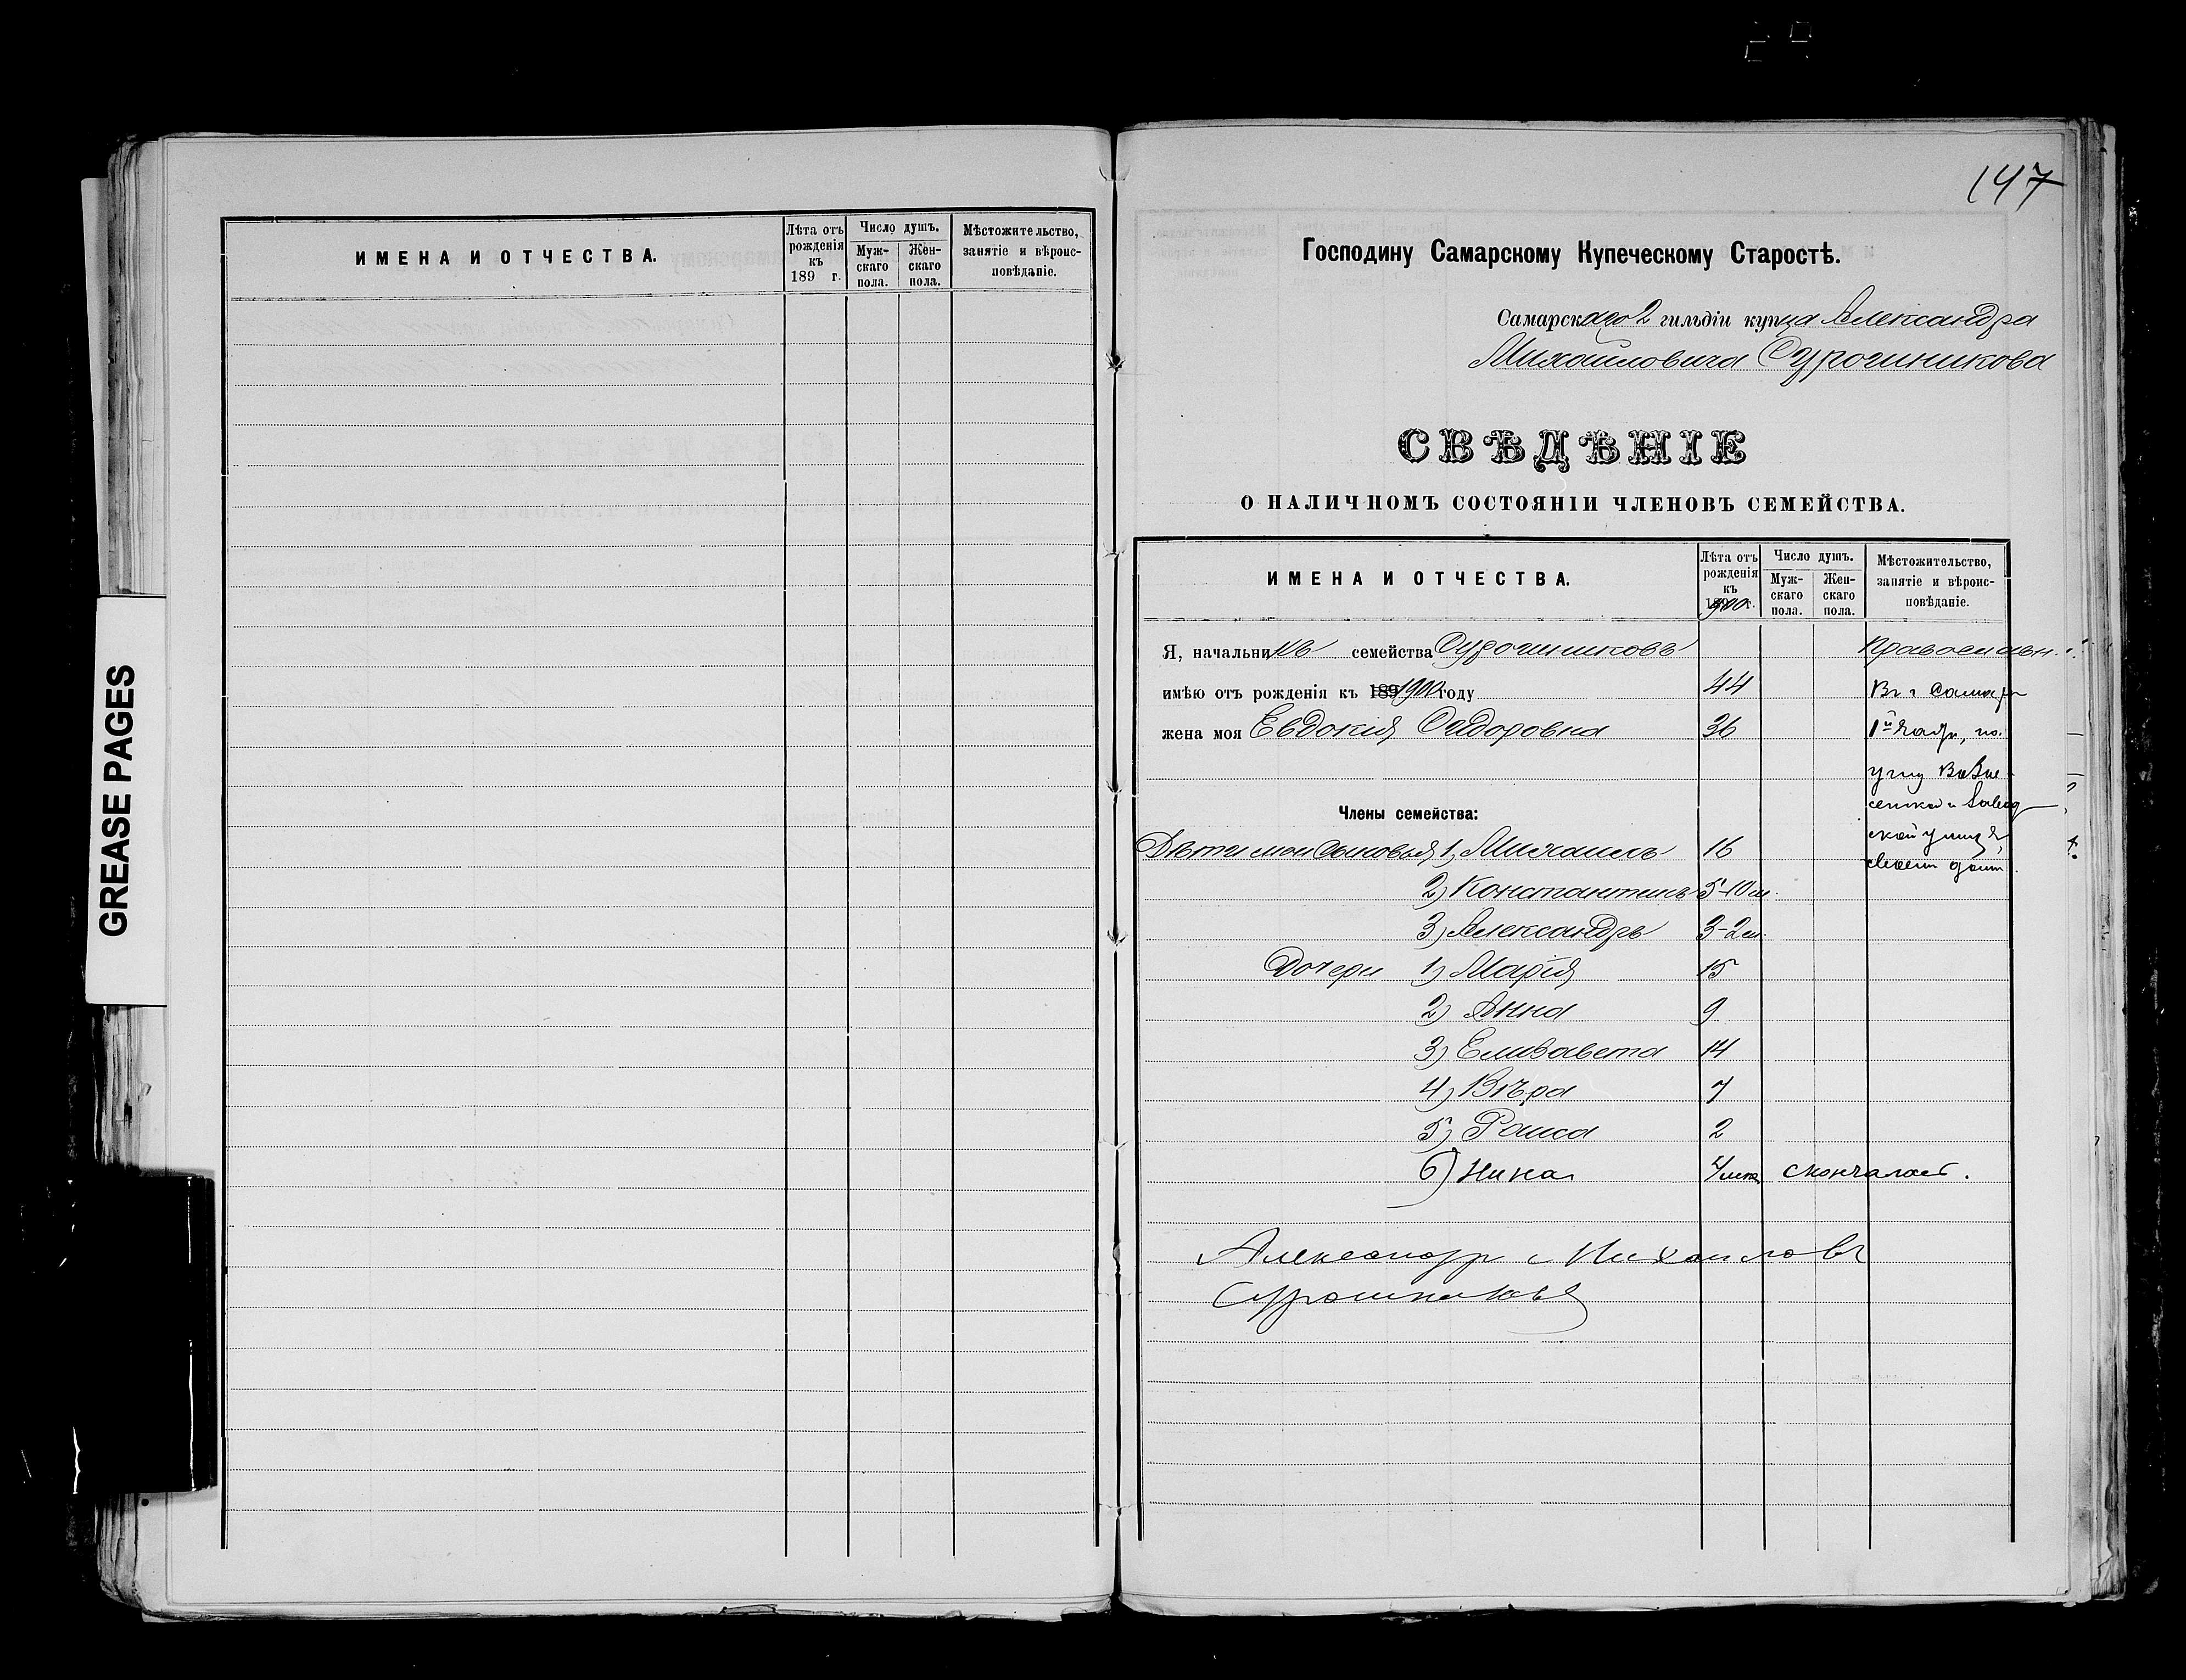 GREASE PAGES
ИМЕНА И ОТЧЕСТВА.
Лѣта отъ рожденія къ 189 г.
Число душъ.
Муж-скаго пола.
Жен-скаго пола.
Мѣстожительство, занятіе и вѣроис-повѣданіе.
147
Господину Самарскому Купеческому Старостѣ.
Самарскаго 2 гильдіи купца Александра
Михайловича Сурошникова
СВѢДѢНІЕ
О НАЛИЧНОМЪ СОСТОЯНІИ ЧЛЕНОВЪ СЕМЕЙСТВА.
ИМЕНА И ОТЧЕСТВА.
Лѣта отъ рожденія къ 1900 г.
Число душъ.
Муж-скаго пола.
Жен-скаго пола.
Мѣстожительство, занятіе и вѣроис-повѣданіе.
Я, начальникъ семейства Сурошниковъ
имѣю отъ рожденія къ 189 1900 году 44 Въ г Самарѣ
жена моя Евдокія Сидоровна 36 1й части, по
углу Возне-
сенской и Завод
ской улицъ,
своем домѣ.
Члены семейства:
Дѣти мои Сыновья 1) Михаилъ 16
2) Константинъ 5-10 м.
3) Александръ 3-2 м.
Дочери 1) Марія 15
2) Анна 9
3) Елизавета 14
4) Вѣра 7
5) Раиса 2
6) Нина скончалась.
Александръ Михайловъ
Сурошниковъ